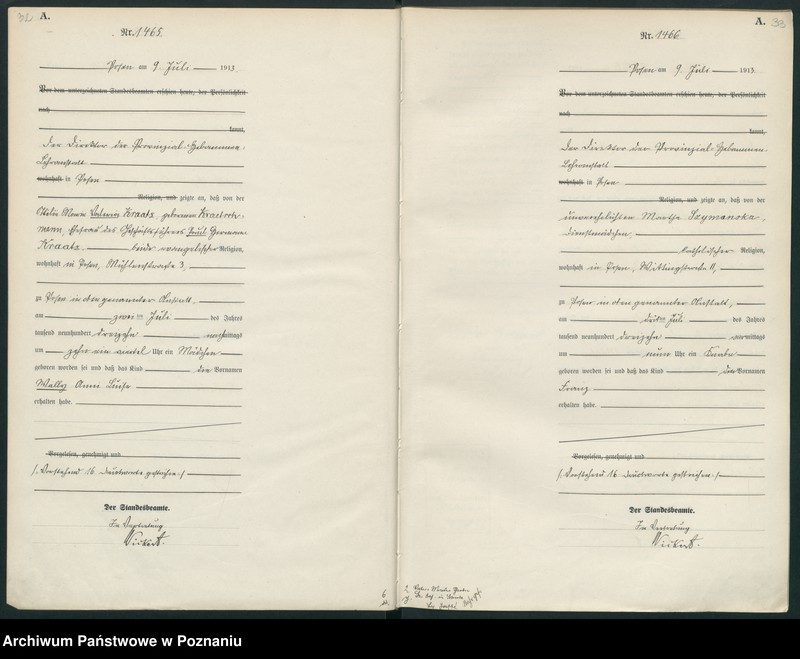 32 A.
Nr. 1465.
Posen am 9. Juli 1913
Vor dem unterzeichneten Standesbeamten erschien heute, der Persönlichkeit
nach
kannt,
Der Direktor der Provinzial-Hebammen-
Lehranstalt
wohnhaft in Posen
Religion, und zeigte an, daß von der
Kraatz, geborenen
mann, Ehefrau des Geschäftsführers Paul Hermann
Kraatz, beide evangelischer Religion,
wohnhaft in Posen, Mühlenstraße 3,
zu Posen in oben genannter Anstalt,
am zweiten Juli des Jahres
tausend neunhundert dreizehn nachmittags
um zehn ein viertel Uhr ein Mädchen
geboren worden sei und daß das Kind die Vornamen
Wally Anna Luise
erhalten habe.
Vorgelesen, genehmigt und
/: Vorstehend 16 Druckworte gestrichen :/
Der Standesbeamte.
In Vertretung
A. 33
Nr. 1466
Posen am 9. Juli 1913
Vor dem unterzeichneten Standesbeamten erschien heute, der Persönlichkeit
nach
kannt,
Der Direktor der Provinzial-Hebammen-
Lehranstalt
wohnhaft in Posen
Religion, und zeigte an, daß von der
unverehelichten Martha Szymanska,
Dienstmädchen,
katholischer Religion,
wohnhaft in Posen, 11,
zu Posen in oben genannter Anstalt,
am dritten Juli des Jahres
tausend neunhundert dreizehn vormittags
um neun Uhr ein Knabe
geboren worden sei und daß das Kind den Vornamen
Franz
erhalten habe.
Vorgelesen, genehmigt und
/: Vorstehend 16 Druckworte gestrichen :/
Der Standesbeamte.
In Vertretung
Archiwum Państwowe w Poznaniu